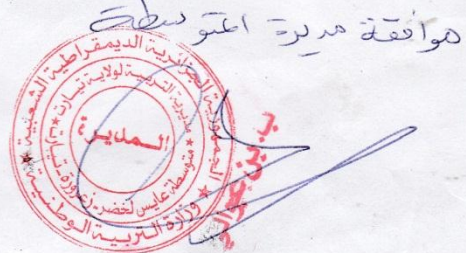 موافقة مديرة المتوسطة
الجمهورية الجزائرية الديمقراطية الشعبية
وزارة التربية الوطنية
مديرية التربية لولاية تيارت
متوسطة عايس لخضر
المديرة